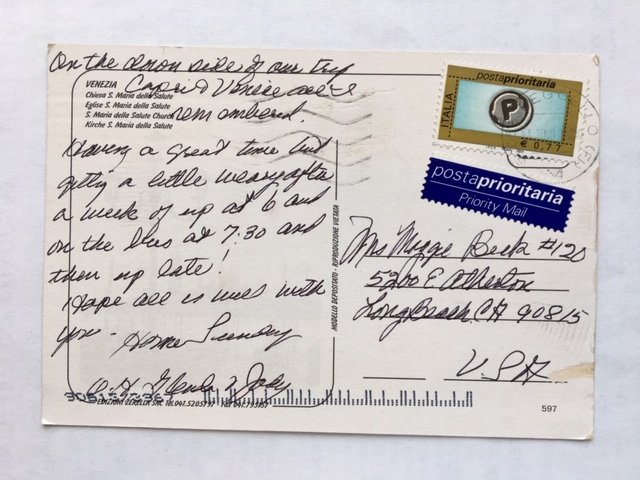 On the down side of our trip
VENEZIA
Capri & Venice
Chiesa S. Maria della Salute
Eglise S. Maria della Salute
S. Maria della Salute Church
Kirche S. Maria della Salute
remembered.
Having a great time but
getting a little weary after
a week of up at 6 and
on the bus at 7:30 and
then up late!
Hope all is well with
you. Home Sunday
EDIZIONI ZERELLA SRL Tel.041.5205757
MODELLO DEPOSITATO - RIPRODUZIONE VIETATA
postaprioritaria
ITALIA
P
€ 0,77
postaprioritaria
Priority Mail
Mrs Maggie Beck #120
5200 E Atherton
Long Beach, CA 90815
USA
597